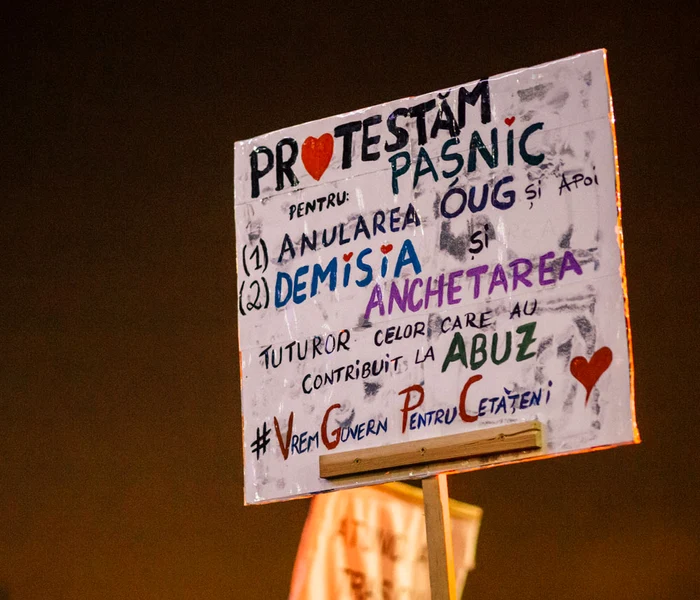 PROTESTĂM
PAȘNIC
PENTRU:
(1) ANULAREA OUG și APOi
(2) DEMiSiA și
ANCHETAREA
TUTUROR CELOR CARE AU
CONTRIBUIT LA ABUZ
#VREM GUVERN PENTRU CETĂȚENi